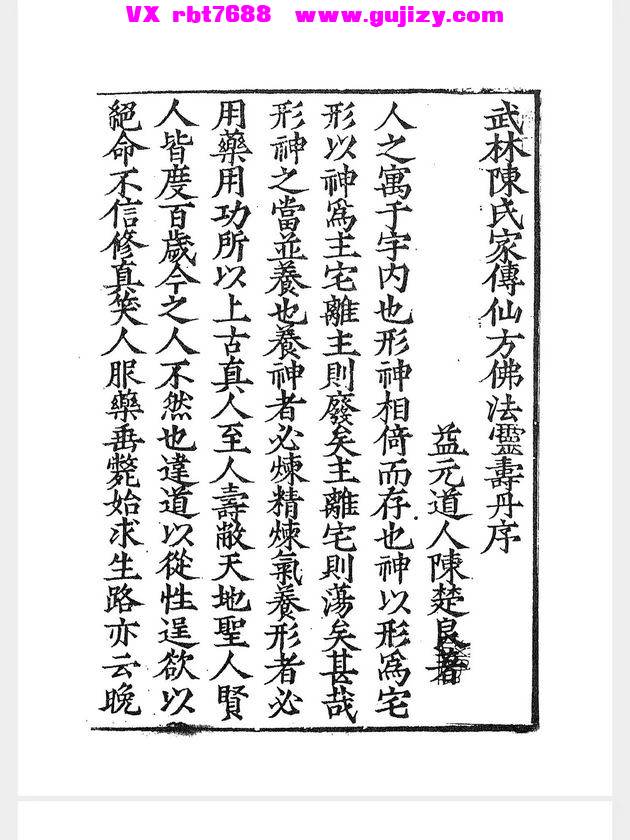 VX rbt7688 www.gujizy.com
武林陳氏家傳仙方佛法靈壽丹序
益元道人陳楚良著
人之寓于宇内也形神相倚而存也神以形爲宅
形以神爲主宅離主則廢矣主離宅則蕩矣甚哉
形神之當並養也養神者必煉精煉氣養形者必
用藥用功所以上古真人至人壽敝天地聖人賢
人皆度百歲今之人不然也違道以從性逞欲以
絕命不信修真笑人服藥垂斃始求生路亦云晚